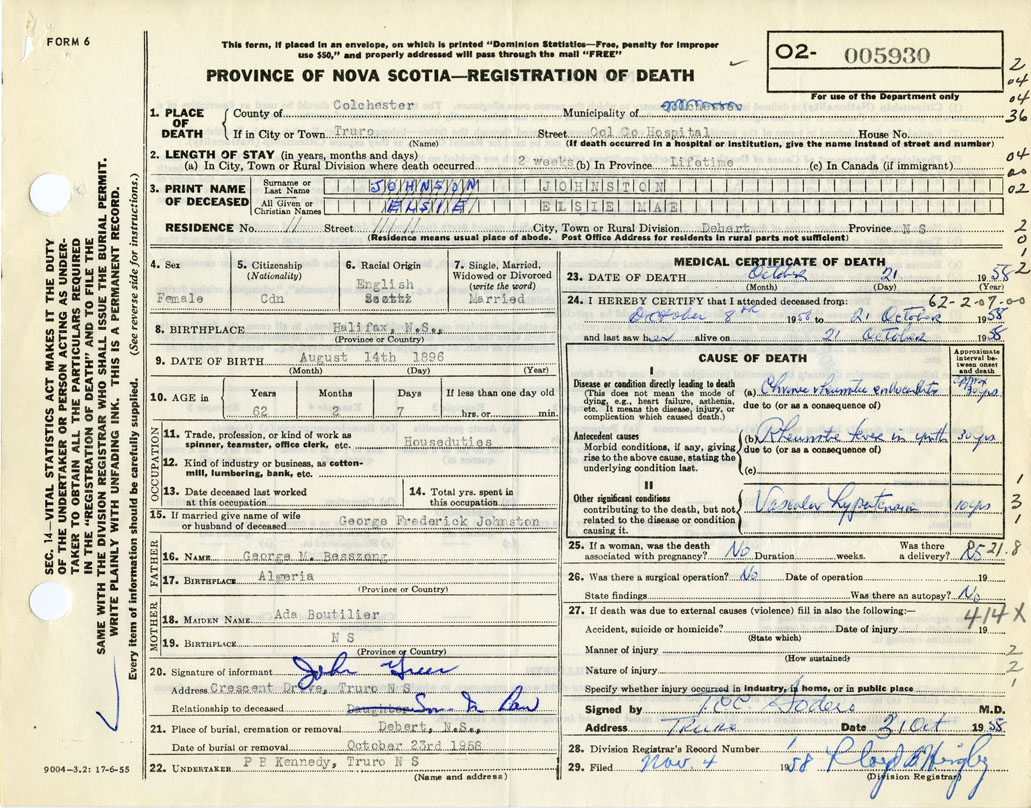 FORM 6
This form, if placed in an envelope, on which is printed "Dominion Statistics—Free, penalty for improper
use $50," and properly addressed will pass through the mail "FREE"
PROVINCE OF NOVA SCOTIA—REGISTRATION OF DEATH
O2- 005930
For use of the Department only
2
04
04
36
04
00
02
2
0
1
2
1. PLACE OF DEATH
County of Colchester Municipality of
If in City or Town Truro Street Col Co Hospital House No.
(Name) (If death occurred in a hospital or institution, give the name instead of street and number)
2. LENGTH OF STAY (in years, months and days)
(a) In City, Town or Rural Division where death occurred 2 weeks (b) In Province Lifetime (c) In Canada (if immigrant)
3. PRINT NAME OF DECEASED
Surname or Last Name JOHNSON JOHNSTON
All Given or Christian Names ELSIE ELSIE MAE
RESIDENCE No. // Street // // // City, Town or Rural Division Debert Province N S
(Residence means usual place of abode. Post Office Address for residents in rural parts not sufficient)
4. Sex Female
5. Citizenship (Nationality) Cdn
6. Racial Origin English
7. Single, Married, Widowed or Divorced (write the word) Married
8. BIRTHPLACE Halifax, N.S.,
(Province or Country)
9. DATE OF BIRTH August 14th 1896
(Month) (Day) (Year)
10. AGE in Years Months Days If less than one day old
62 2 7 hrs. or min.
OCCUPATION
11. Trade, profession, or kind of work as spinner, teamster, office clerk, etc. Houseduties
12. Kind of industry or business, as cotton-mill, lumbering, bank, etc.
13. Date deceased last worked at this occupation
14. Total yrs. spent in this occupation
15. If married give name of wife or husband of deceased George Frederick Johnston
FATHER
16. NAME George M. Besszong
17. BIRTHPLACE Algeria
(Province or Country)
MOTHER
18. MAIDEN NAME Ada Boutilier
19. BIRTHPLACE N S
(Province or Country)
20. Signature of informant John Greer
Address Crescent Drive, Truro N S
Relationship to deceased Daughter Son In Law
21. Place of burial, cremation or removal Debert, N.S.,
Date of burial or removal October 23rd 1958
22. UNDERTAKER P B Kennedy, Truro N S
(Name and address)
MEDICAL CERTIFICATE OF DEATH
23. DATE OF DEATH October 21 1958
(Month) (Day) (Year)
62-2-07-00
24. I HEREBY CERTIFY that I attended deceased from:
October 8th 1958 to 21 October 1958
and last saw her alive on 21 October 1958
CAUSE OF DEATH
Approximate interval between onset and death
I
Disease or condition directly leading to death
(This does not mean the mode of dying, e.g., heart failure, asthenia, etc. It means the disease, injury, or complication which caused death.)
(a) Chronic rheumatic endocarditis yrs
due to (or as a consequence of)
Antecedent causes
Morbid conditions, if any, giving rise to the above cause, stating the underlying condition last.
(b) Rheumatic fever in youth 30 yrs
due to (or as a consequence of)
(c)
II
Other significant conditions
contributing to the death, but not related to the disease or condition causing it.
Vascular hypertension 10 yrs
1
3
1
25. If a woman, was the death associated with pregnancy? No Duration weeks. Was there a delivery?
21.8
26. Was there a surgical operation? No Date of operation 19
State findings Was there an autopsy? No
27. If death was due to external causes (violence) fill in also the following:—
414X
Accident, suicide or homicide? Date of injury 19
(State which)
Manner of injury 2
(How sustained)
Nature of injury 2
1
Specify whether injury occurred in industry, in home, or in public place
Signed by M.D.
Address Truro Date 31 Oct 1958
28. Division Registrar's Record Number
29. Filed Nov. 4 1958
(Division Registrar)
SEC. 14—VITAL STATISTICS ACT MAKES IT THE DUTY
OF THE UNDERTAKER OR PERSON ACTING AS UNDER-
TAKER TO OBTAIN ALL THE PARTICULARS REQUIRED
IN THE "REGISTRATION OF DEATH" AND TO FILE THE
SAME WITH THE DIVISION REGISTRAR WHO SHALL ISSUE THE BURIAL PERMIT.
WRITE PLAINLY WITH UNFADING INK. THIS IS A PERMANENT RECORD.
Every item of information should be carefully supplied. (See reverse side for instructions.)
9004—3.2: 17-6-55